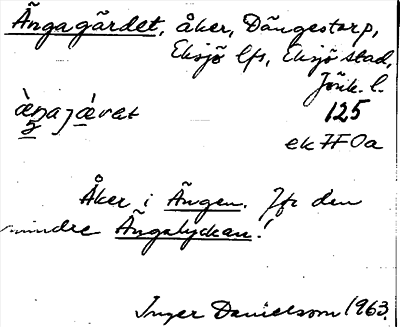 Ängagärdet, åker, Dängestorp,
Eksjö lfs, Eksjö stad,
Jönk. l.
125
ek 7F0a
Åker i Ängen. Jfr den
mindre Ängalyckan!
Inger Danielsson 1963.